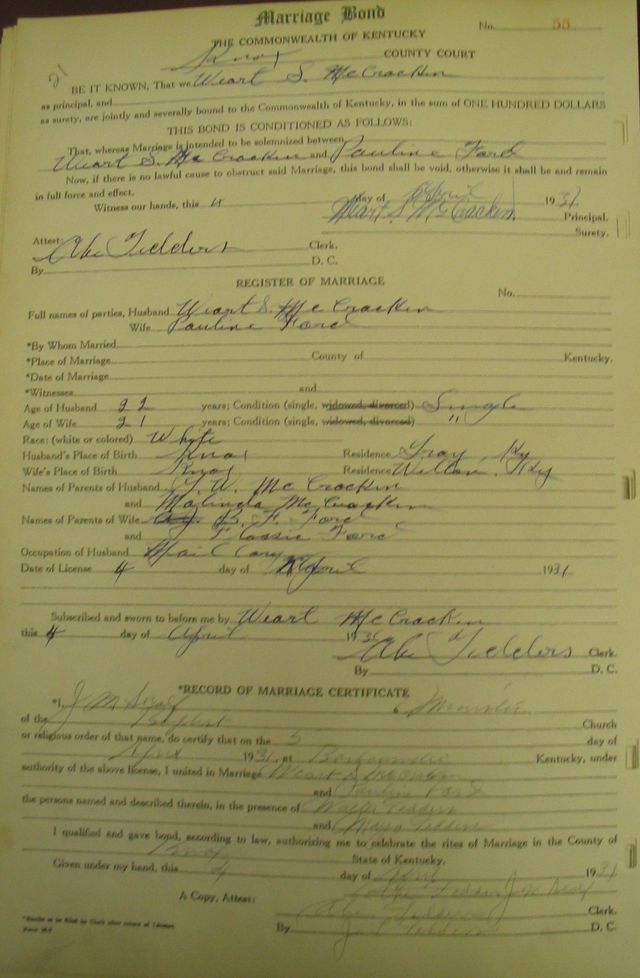 Marriage Bond
No. 55
THE COMMONWEALTH OF KENTUCKY
Knox COUNTY COURT
21
BE IT KNOWN, That we Weart S. McCracken
as principal, and
as surety, are jointly and severally bound to the Commonwealth of Kentucky, in the sum of ONE HUNDRED DOLLARS
THIS BOND IS CONDITIONED AS FOLLOWS:
That, whereas Marriage is intended to be solemnized between
Weart S. McCracken and Pauline Ford
Now, if there is no lawful cause to obstruct said Marriage, this bond shall be void, otherwise it shall be and remain
in full force and effect.
Witness our hands, this 4 day of April 1931
Weart S. McCracken Principal.
Surety.
Attest:
Abe Tedders Clerk.
By D. C.
REGISTER OF MARRIAGE
No.
Full names of parties, Husband Weart S. McCracken
Wife Pauline Ford
*By Whom Married
*Place of Marriage County of Kentucky.
*Date of Marriage
*Witnesses and
Age of Husband 22 years; Condition (single, widowed, divorced) Single
Age of Wife 21 years; Condition (single, widowed, divorced) "
Race: (white or colored) White
Husband's Place of Birth Knox Residence Gray Ky
Wife's Place of Birth Knox Residence Wilton, Ky
Names of Parents of Husband W. McCracken
and Malinda McCracken
Names of Parents of Wife B. F. Ford
and Flossie Ford
Occupation of Husband Mail
Date of License 4 day of April 1931
Subscribed and sworn to before me by Weart McCracken
this 4 day of April 1931
Abe Tedders Clerk.
By D. C.
*RECORD OF MARRIAGE CERTIFICATE
*I, J. M. a Minister
of the Baptist Church
or religious order of that name, do certify that on the 5 day of
April 1931, at Barbourville Kentucky, under
authority of the above license, I united in Marriage Weart S. McCracken
and Pauline Ford
the persons named and described therein, in the presence of Walter Tedders
and Tedders
I qualified and gave bond, according to law, authorizing me to celebrate the rites of Marriage in the County of
Knox State of Kentucky.
Given under my hand, this 4 day of April 1931
J. M.
A Copy, Attest: Abe Tedders Clerk.
By D. C.